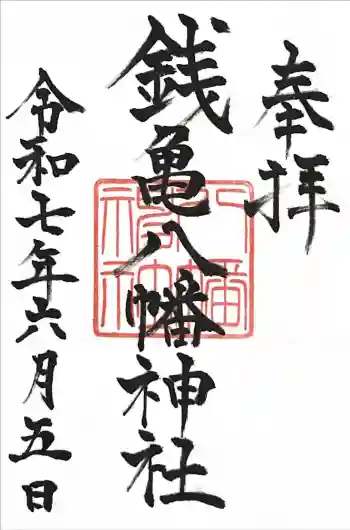 奉拝
銭亀八幡神社
令和七年六月五日